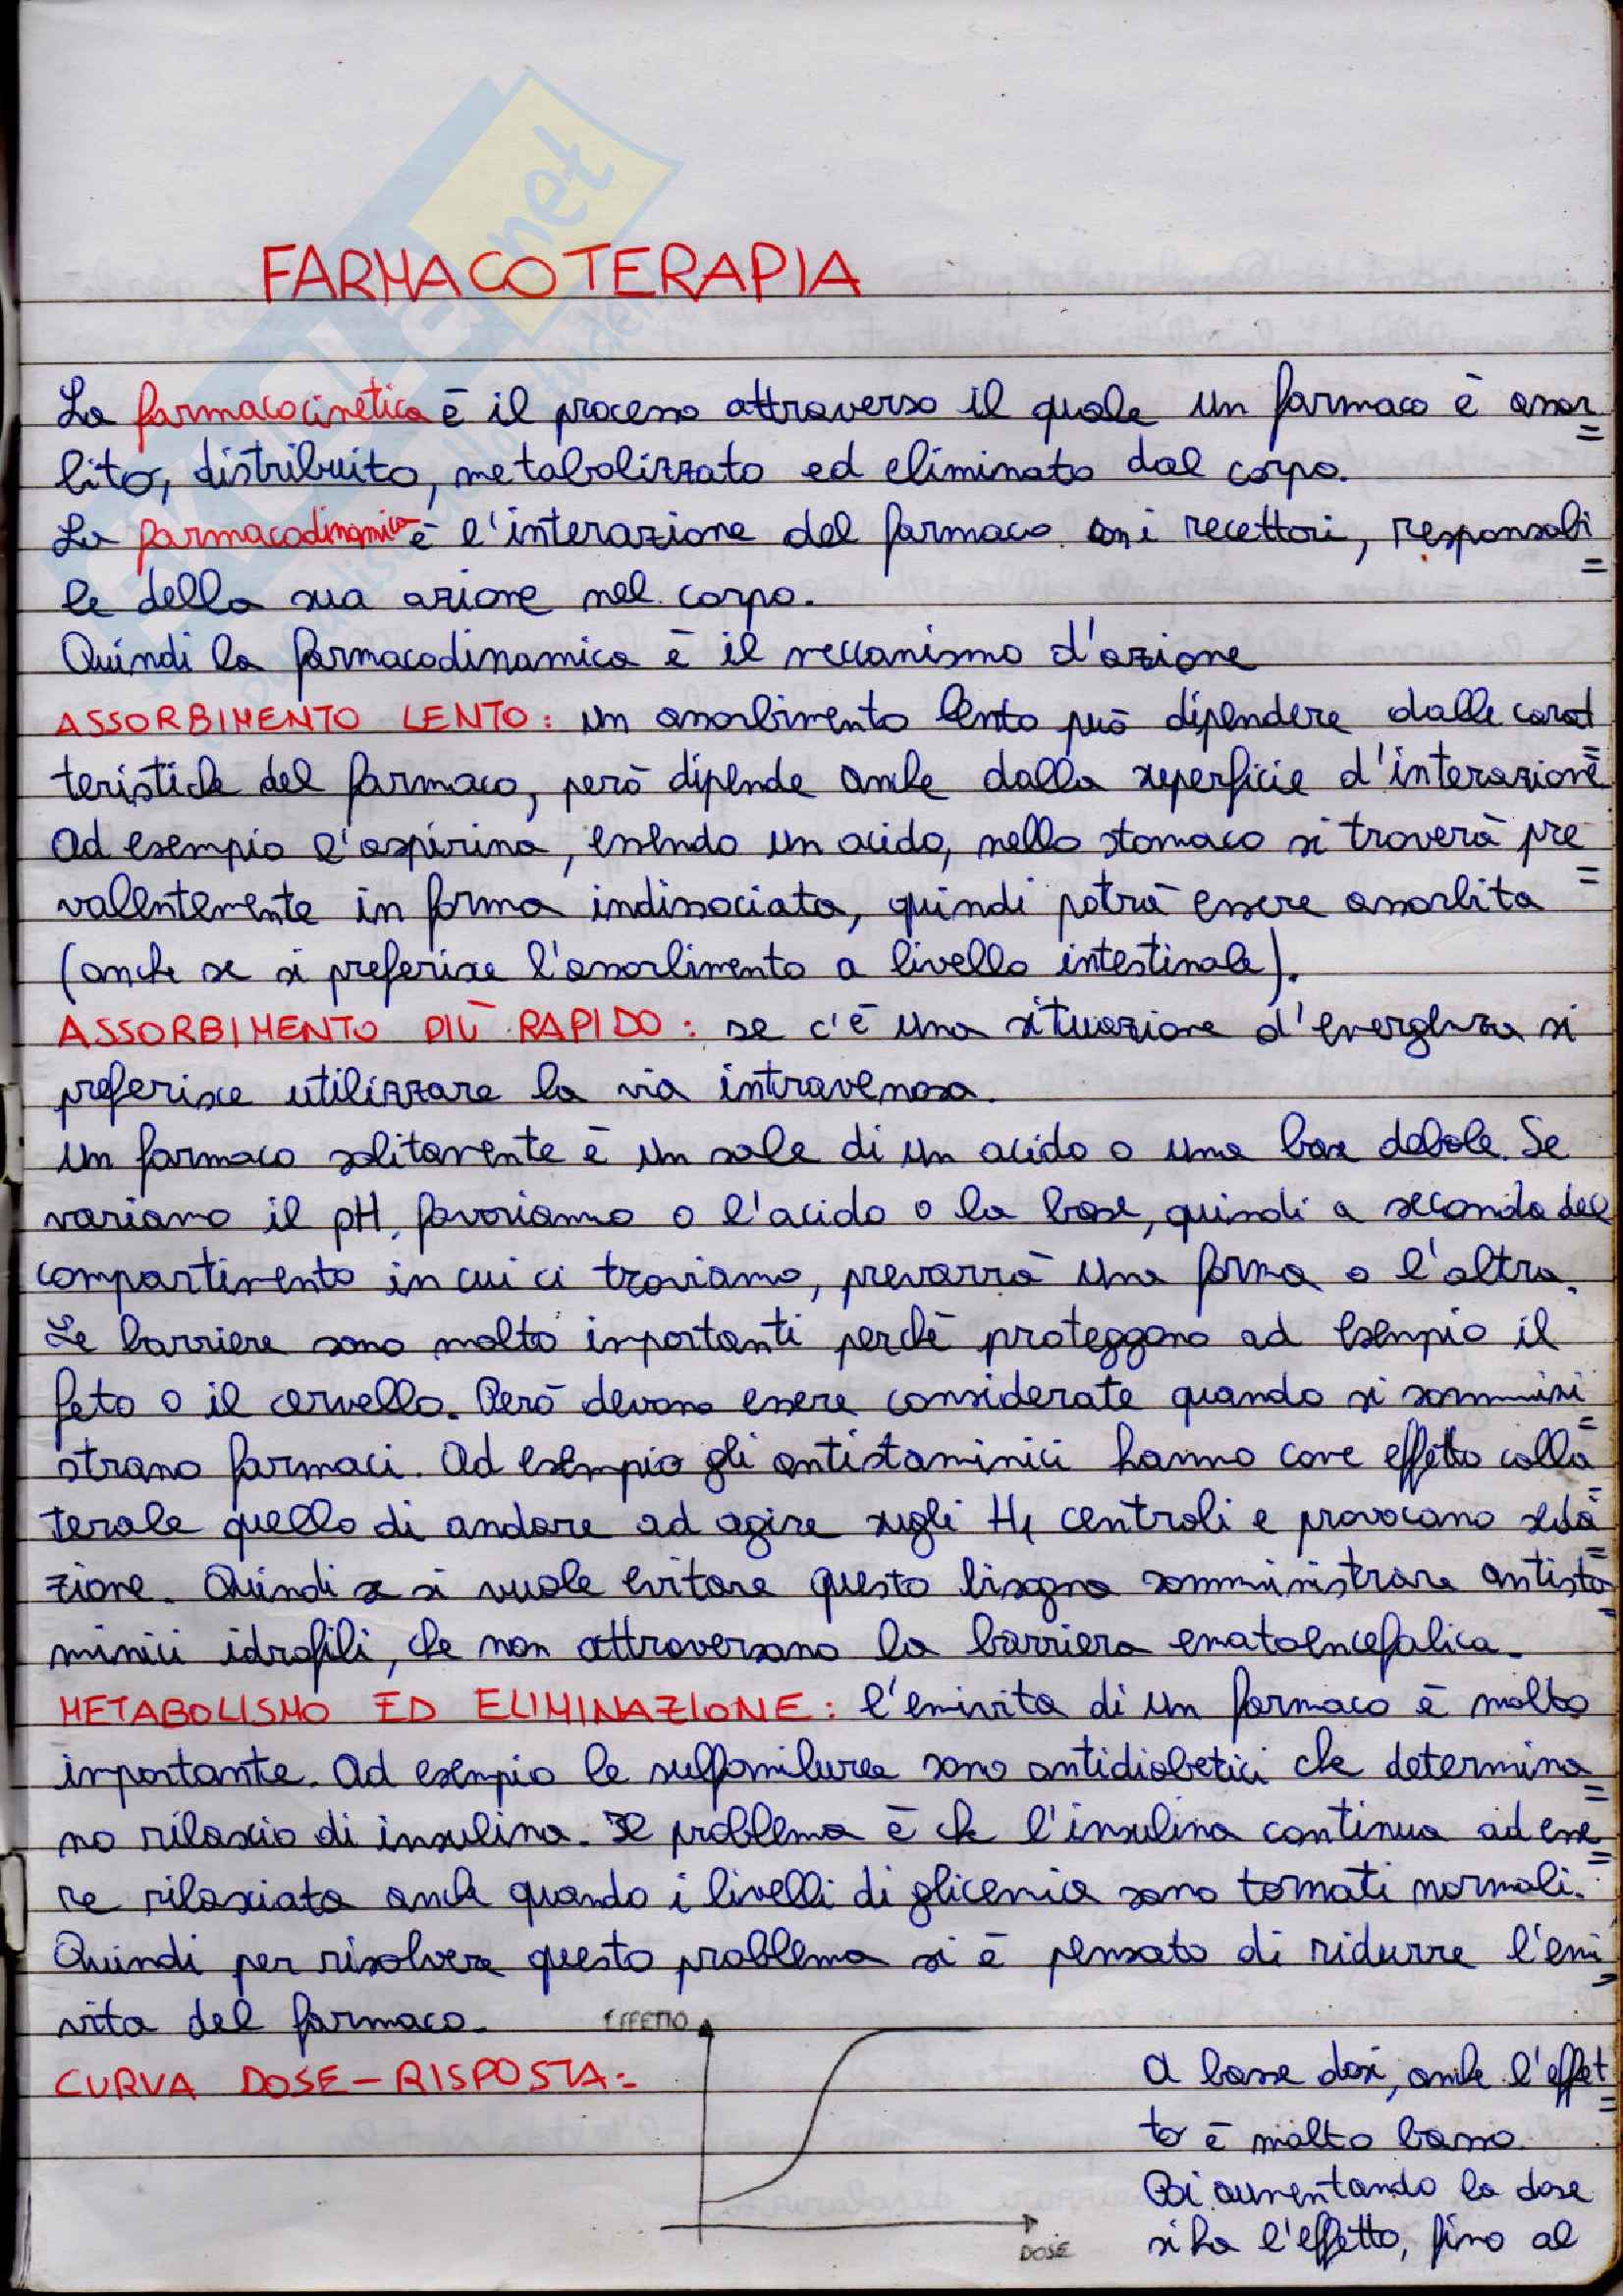 FARMACOTERAPIA
La farmacocinetica è il processo attraverso il quale un farmaco è assor=
bito, distribuito, metabolizzato ed eliminato dal corpo.
La farmacodinamica è l'interazione del farmaco con i recettori, responsabi=
le della sua azione nel corpo.
Quindi la farmacodinamica è il meccanismo d'azione
ASSORBIMENTO LENTO: un assorbimento lento può dipendere dalle carat=
teristiche del farmaco, però dipende anche dalla superficie d'interazione
Ad esempio l'aspirina, essendo un acido, nello stomaco si troverà pre=
valentemente in forma indissociata, quindi potrà essere assorbita
(anche se si preferisce l'assorbimento a livello intestinale).
ASSORBIMENTO PIÙ RAPIDO: se c'è una situazione d'emergenza si
preferisce utilizzare la via intravenosa.
Un farmaco solitamente è un sale di un acido o una base debole. Se
variamo il pH, favoriamo o l'acido o la base, quindi a seconda del
compartimento in cui ci troviamo, prevarrà una forma o l'altra.
Le barriere sono molto importanti perchè proteggono ad esempio il
feto o il cervello. Però devono essere considerate quando si sommini=
strano farmaci. Ad esempio gli antistaminici hanno come effetto colla=
terale quello di andare ad agire sugli H1 centrali e provocano seda=
zione. Quindi se si vuole evitare questo bisogna somministrare antista=
minici idrofili, che non attraversano la barriera ematoencefalica.
METABOLISMO ED ELIMINAZIONE: l'emivita di un farmaco è molto
importante. Ad esempio le sulfaniluree sono antidiabetici che determina=
no rilascio di insulina. Il problema è che l'insulina continua ad esse=
re rilasciata anche quando i livelli di glicemia sono tornati normali.
Quindi per risolvere questo problema si è pensato di ridurre l'emi=
vita del farmaco.
EFFETTO
CURVA DOSE-RISPOSTA:
A basse dosi, anche l'effet=
to è molto basso.
Poi aumentando la dose
si ha l'effetto, fino al
DOSE